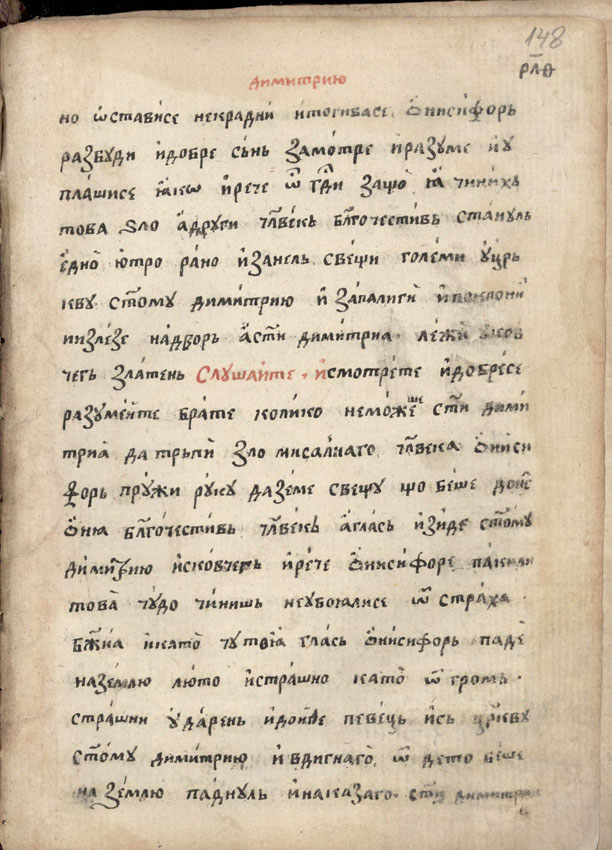 148
рл҃ѳ
димитрию
но ѡстависе некрадни итогивасе, ѻнисифорь
разбуди и҆добре сънь замотре и҆разуме и҆у
плашисе ꙗ҆кѡ и҆рече ѿ гдⷭ҇и защо ꙗ҆ чинихь
това ѕло а҆други чл҃векь бл҃гочестивь станулъ
е҆дно ютро рано и҆занель свещи големи у҆црь
кву ст҃ому димитрию и҆ запалиги и҆поклони
иизлезе надворь а҆ст҃и димитриа лежи
чегь златень Слушаите, и҆смотрете и҆добресе
разумеите брате колико неможеше ст҃и дими
триа да трьпи зло мисалнаго чл҃века ѻниси
ѳорь пружи руку даземе свещу що беше доне
ѻ҆ниа бл҃гочестивь чл҃векь а҆глась и҆зиде ст҃ому
димитрию и҆сковчегь и҆рече ѻнисифоре паки
това чудо чинишь неубоꙗлисе ѿ страха
бж҃иа и҆като чу тоꙗ глась ѻнисифорь паде
наземлю люто и҆страшно като ѿ громь
страшни у҆дарень и҆доиде певець и҆сь цр҃кву
ст҃ому димитрию и҆ вдигнаго, ѿ дето беше
на землю паднуль и҆наказаго ст҃и димитриа